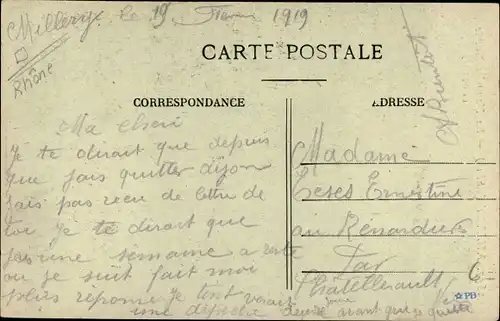 Millery le 19 1919
Rhône
CARTE POSTALE
CORRESPONDANCE
ADRESSE
Ma cheri
Je te dirait que depuis
que jais quitter dijon
jais pas recu de letre de
toi je te dirait que
jais une semaine a reste
ou je suit fait moi
reponse je tant
une depeche deux jour avant que je quitte
Madame
Ernestine
au Renardier
Par
Châtellerault
6
☆PB